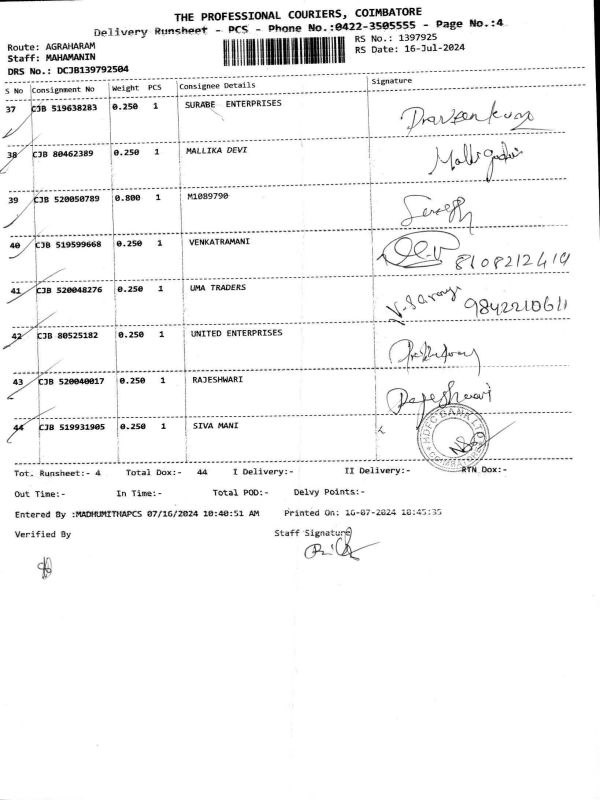 THE PROFESSIONAL COURIERS, COIMBATORE
Delivery Runsheet - PCS - Phone No.:0422-3505555 - Page No.:4
Route: AGRAHARAM
RS No.: 1397925
Staff: MAHAMANIN
RS Date: 16-Jul-2024
DRS No.: DCJB139792504
S No Consignment No Weight PCS Consignee Details Signature
37 CJB 519638283 0.250 1 SURABE ENTERPRISES
38 CJB 80462389 0.250 1 MALLIKA DEVI
39 CJB 520050789 0.800 1 M1089790
40 CJB 519599668 0.250 1 VENKATRAMANI 8108212419
41 CJB 520048276 0.250 1 UMA TRADERS 9842210611
42 CJB 80525182 0.250 1 UNITED ENTERPRISES
43 CJB 520040017 0.250 1 RAJESHWARI Rajeshwari
44 CJB 519931905 0.250 1 SIVA MANI HDFC BANK LTD
Tot. Runsheet:- 4 Total Dox:- 44 I Delivery:- II Delivery:- RTN Dox:-
Out Time:- In Time:- Total POD:- Delvy Points:-
Entered By :MADHUMITHAPCS 07/16/2024 10:40:51 AM Printed On: 16-07-2024 10:45:35
Verified By Staff Signature